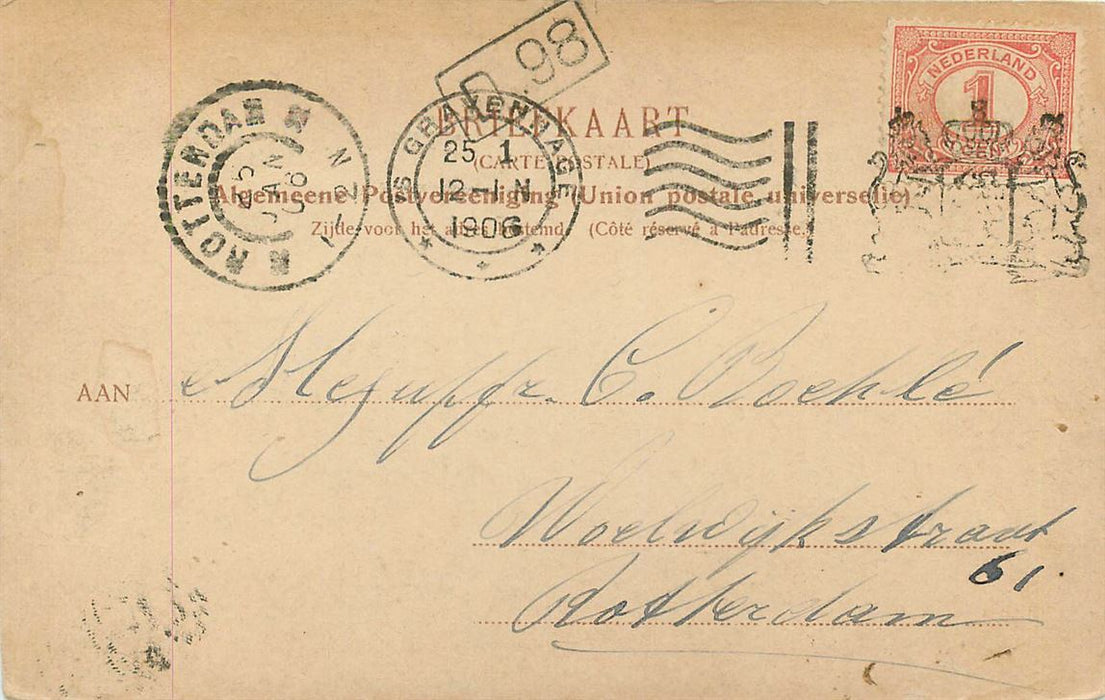 D. 98
NEDERLAND
1
CENT
ROTTERDAM
25 JAN 06
1-2 N
'S GRAVENHAGE
25 1
12-1 N
1906
BRIEFKAART
(CARTE POSTALE)
Algemeene Postvereeniging (Union postale universelle)
Zijde voor het adres bestemd. (Côté réservé à l'adresse.)
AAN Mejuffr. C. Boehlé
Woelwijkstraat
61
Rotterdam